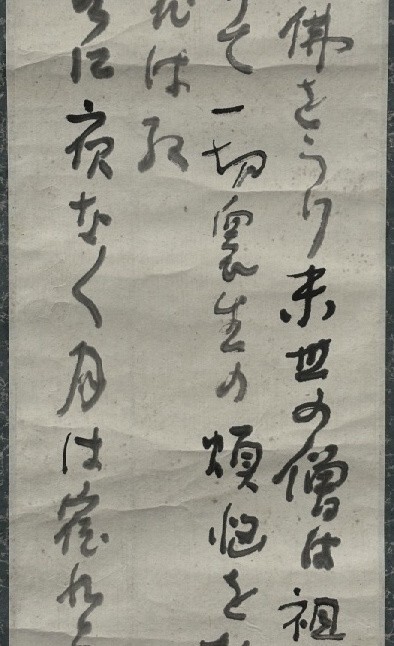 佛をうり末世の僧は祖
て一切衆生の煩悩を
は紅
に夜な〱月は宿れ